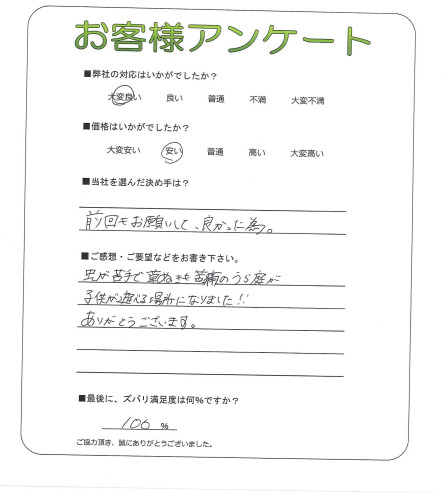 お客様アンケート
■弊社の対応はいかがでしたか？
大変良い 良い 普通 不満 大変不満
■価格はいかがでしたか？
大変安い 安い 普通 高い 大変高い
■当社を選んだ決め手は？
前回もお願いして、良かった為。
■ご感想・ご要望などをお書き下さい。
虫が苦手で草ぬきも苦痛のうら庭が
子供が遊べる場所になりました!!
ありがとうございます。
■最後に、ズバリ満足度は何％ですか？
100 ％
ご協力頂き、誠にありがとうございました。